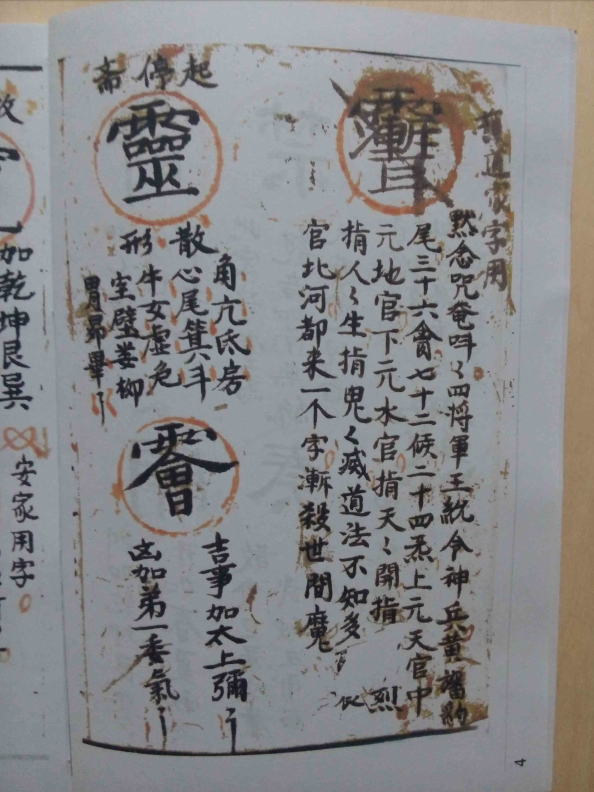 道家字用
默念咒奄吽〻四將軍王統令神兵黃旛豹
尾三十六禽七十二候二十四炁上元天官中
元地官下元水官指天〻開指 烈
指人〻生指鬼〻滅道法不知多
官北河都来一个字漸殺世間魔
起停斋
靈
角亢氐房
散心尾箕六斗
形牛女虛危
室壁婁柳
胃昴畢
吉事加太上彌
凶加弟一委氣
加乾坤艮巽
安家用字
4